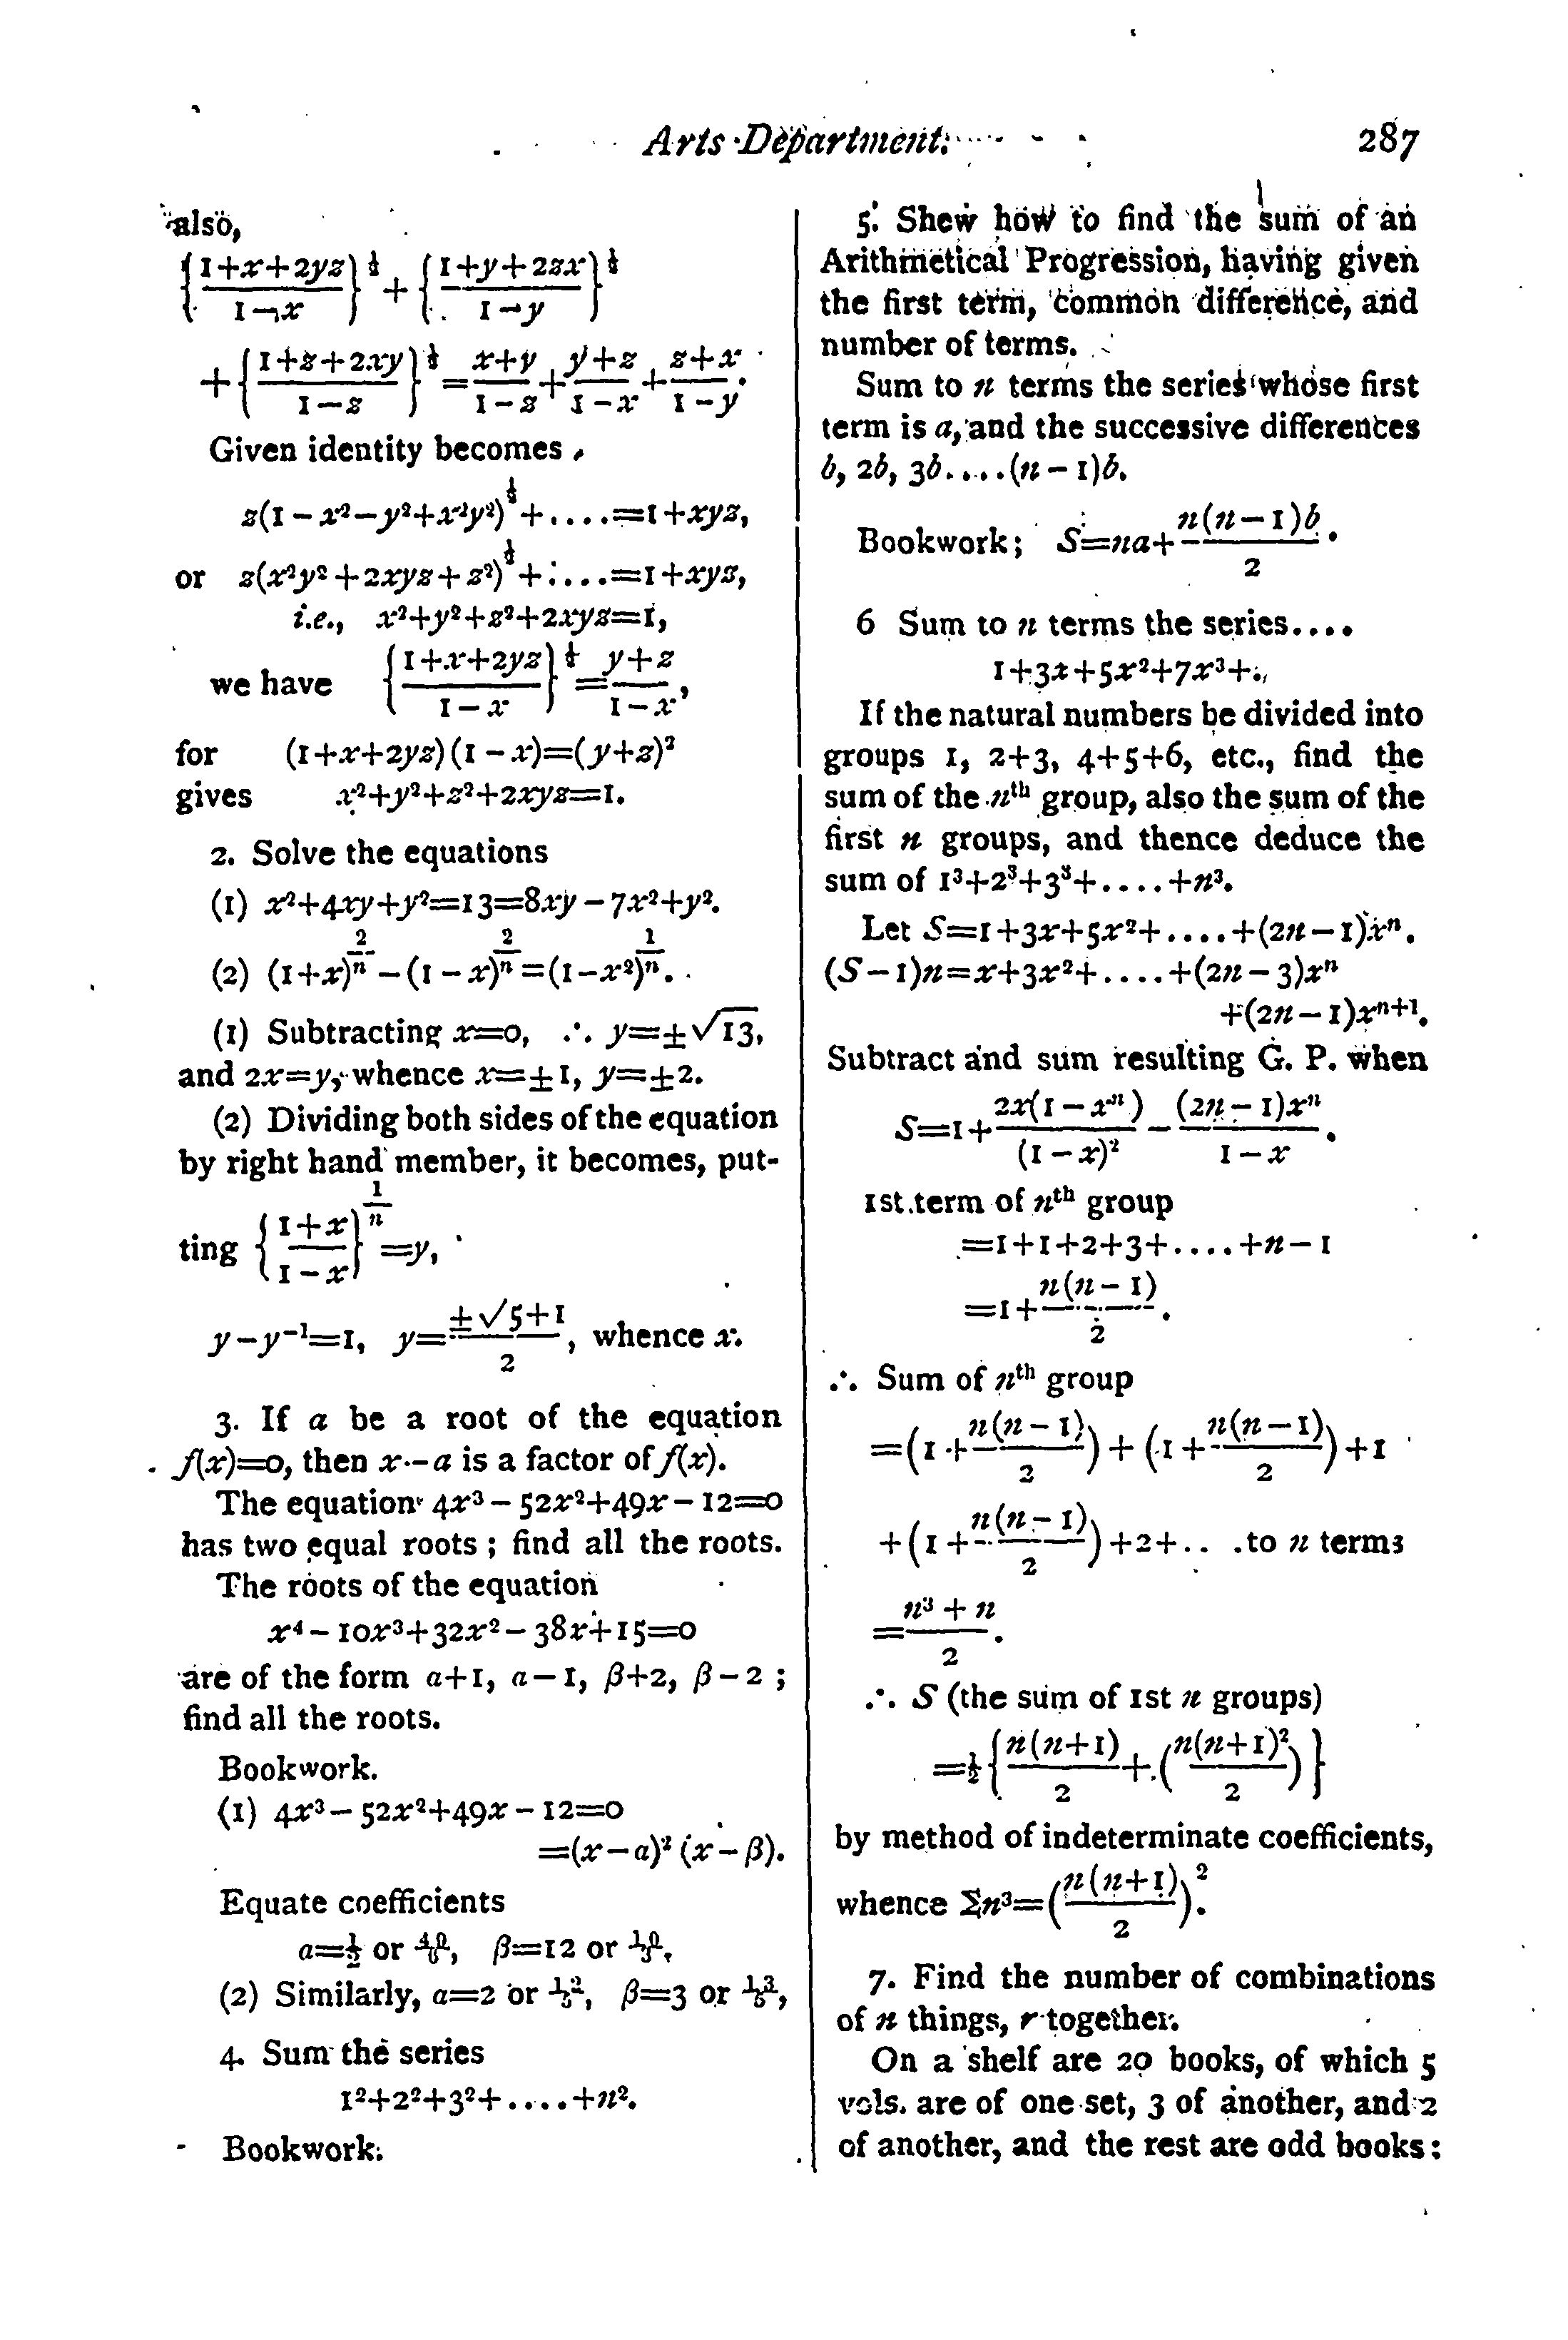 Arts Department. 287
also,
{(1+x+2yz)/(1-x)}^½ + {(1+y+2zx)/(1-y)}^½
+{(1+z+2xy)/(1-z)}^½ = (x+y)/(1-z) + (y+z)/(1-x) + (z+x)/(1-y).
Given identity becomes
z(1-x²-y²+x²y²)^½+....=1+xyz,
or z(x²y²+2xyz+z²)^½+....=1+xyz,
i.e., x²+y²+z²+2xyz=1,
we have {(1+x+2yz)/(1-x)}^½ = (y+z)/(1-x),
for (1+x+2yz)(1-x)=(y+z)²
gives x²+y²+z²+2xyz=1.
2. Solve the equations
(1) x²+4xy+y²=13=8xy-7x²+y².
(2) (1+x)^(2/n)-(1-x)^(2/n)=(1-x²)^(1/n).
(1) Subtracting x=0, ∴ y=±√13,
and 2x=y, whence x=±1, y=±2.
(2) Dividing both sides of the equation
by right hand member, it becomes, put-
ting {(1+x)/(1-x)}^(1/n) =y,
y-y⁻¹=1, y=(±√5+1)/2, whence x.
3. If a be a root of the equation
f(x)=0, then x-a is a factor of f(x).
The equation 4x³-52x²+49x-12=0
has two equal roots ; find all the roots.
The roots of the equation
x⁴-10x³+32x²-38x+15=0
are of the form a+1, a-1, β+2, β-2 ;
find all the roots.
Bookwork.
(1) 4x³-52x²+49x-12=0
=(x-a)² (x-β).
Equate coefficients
a=½ or 49/6, β=12 or
(2) Similarly, a=2 or β=3 or
4. Sum the series
1²+2²+3²+....+n².
Bookwork.
5. Shew how to find the sum of an
Arithmetical Progression, having given
the first term, common difference, and
number of terms.
Sum to n terms the series whose first
term is a, and the successive differences
b, 2b, 3b.....(n-1)b.
Bookwork; S=na+n(n-1)b/2.
6 Sum to n terms the series....
1+3x+5x²+7x³+..
If the natural numbers be divided into
groups 1, 2+3, 4+5+6, etc., find the
sum of the nth group, also the sum of the
first n groups, and thence deduce the
sum of 1³+2³+3³+....+n³.
Let S=1+3x+5x²+....+(2n-1)xⁿ.
(S-1)n=x+3x²+....+(2n-3)xⁿ
+(2n-1)xⁿ⁺¹.
Subtract and sum resulting G. P. when
S=1+2x(1-xⁿ)/(1-x)² - (2n-1)xⁿ/(1-x).
1st term of nth group
=1+1+2+3+....+n-1
=1+n(n-1)/2.
∴ Sum of nth group
=(1+n(n-1)/2)+(1+n(n-1)/2)+1
+(1+n(n-1)/2)+2+.. .to n terms
=(n³+n)/2.
∴ S (the sum of 1st n groups)
=½{n(n+1)/2+(n(n+1)²/2)}
by method of indeterminate coefficients,
whence Σn³=(n(n+1)/2)².
7. Find the number of combinations
of n things, r together.
On a shelf are 20 books, of which 5
vols. are of one set, 3 of another, and 2
of another, and the rest are odd books: